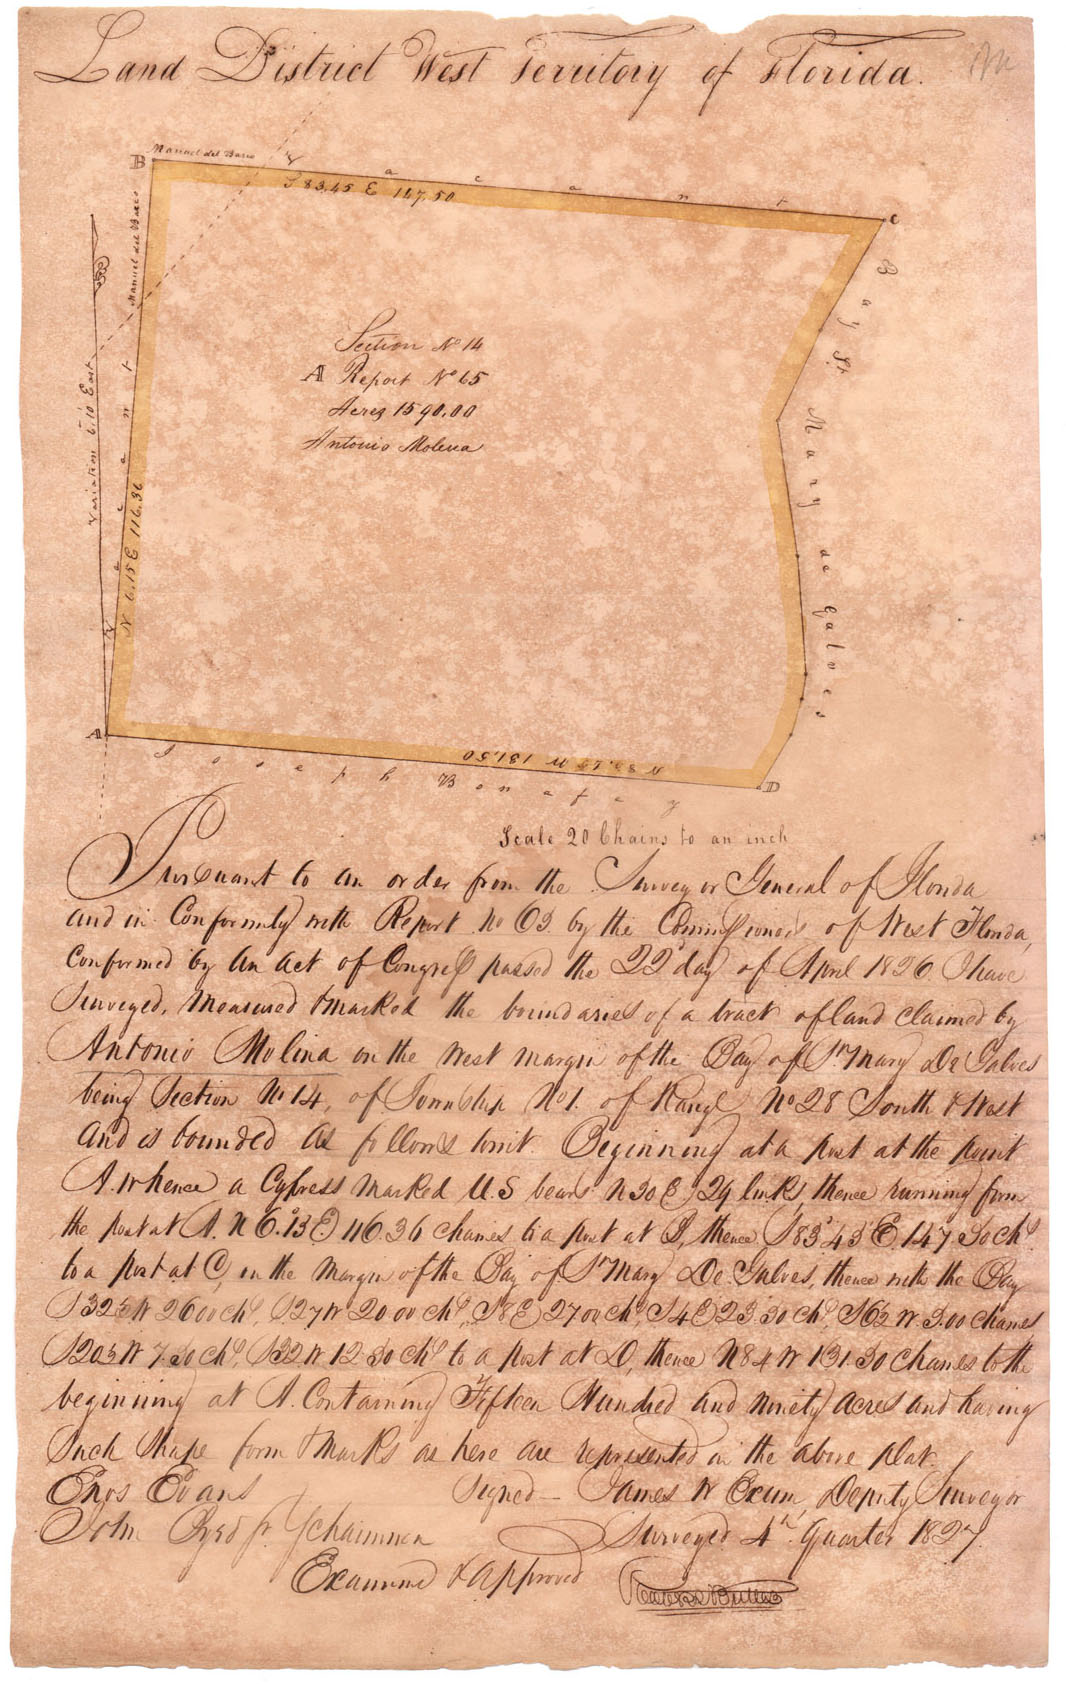 Land District West Territory of Florida.
B
Manuel del Barco
V a c a n t
S 83.45 E 147.50
C
Manuel del Barco
V a c a n t
N 6.15 E 116.36
Variation 6.10 East
Section No 14
A Report No 65
Acres 1590.00
Antonio Molina
Bay St Mary de Galves
A
N 83.45 W 131.50
D
Joseph Bonafay
Scale 20 Chains to an inch
Pursuant to an order from the Surveyor General of Florida
and in Conformity with Report No 65 by the Commissioners of West Florida,
Confirmed by an act of Congress passed the 22d day of April 1826 I have
Surveyed, Measured & marked the boundaries of a tract of land claimed by
Antonio Molina on the west margin of the Bay of St Mary De Galves
being Section No 14, of Township No 1. of Range No 28 South & West
and is bounded as follows towit. Beginning at a post at the point
A. whence a Cypress marked U.S bears N 30 E 29 links, thence running from
the post at A. N 6.15 E 116.36 chains to a post at B, thence S 83°45' E. 147.50 Chs
to a post at C, on the margin of the Bay of St Mary De Galves, thence with the Bay
S 32½ W 26 00 chs, S 27 W 20 00 chs, S 8 E 27 00 chs, S 4 E 23.50 Chs, S 6½ W 5.00 chains
S 20½ W 7.50 Chs, S 32 W 12.50 Chs to a post at D, thence N 84 W 131.50 Chains to the
beginning at A. Containing Fifteen Hundred and ninety acres and having
Such Shape form & Marks as here are represented in the above plat.
Enos Evans Signed — James W Exum, Deputy Surveyor
John Byrd Jr } chainmen Surveyed 4th Quarter 1827.
Examined & Approved
Robt Butler